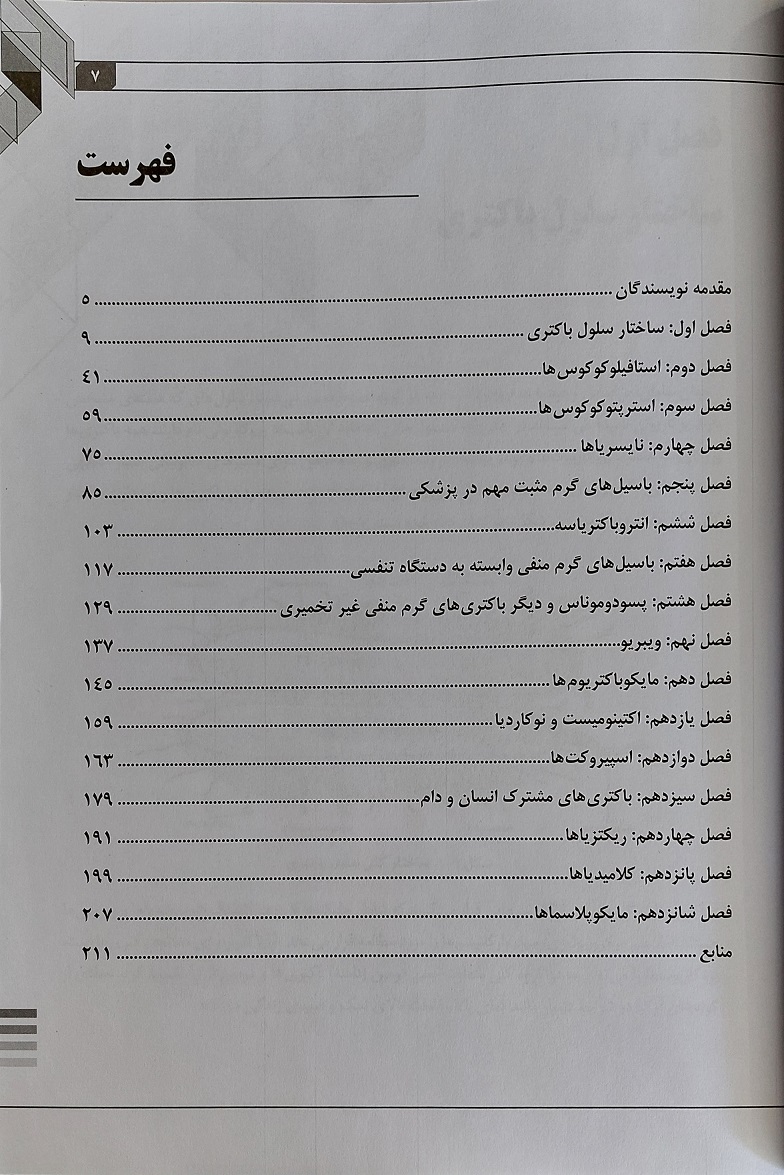 ۷
فهرست
مقدمه نویسندگان ........ ۵
فصل اول: ساختار سلول باکتری ........ ۹
فصل دوم: استافیلوکوکوس‌ها ........ ۴۱
فصل سوم: استرپتوکوکوس‌ها ........ ۵۹
فصل چهارم: نایسریاها ........ ۷۵
فصل پنجم: باسیل‌های گرم مثبت مهم در پزشکی ........ ۸۵
فصل ششم: انتروباکتریاسه ........ ۱۰۳
فصل هفتم: باسیل‌های گرم منفی وابسته به دستگاه تنفسی ........ ۱۱۷
فصل هشتم: پسودوموناس و دیگر باکتری‌های گرم منفی غیر تخمیری ........ ۱۲۹
فصل نهم: ویبریو ........ ۱۳۷
فصل دهم: مایکوباکتریوم‌ها ........ ۱۴۵
فصل یازدهم: اکتینومیست و نوکاردیا ........ ۱۵۹
فصل دوازدهم: اسپیروکت‌ها ........ ۱۶۳
فصل سیزدهم: باکتری‌های مشترک انسان و دام ........ ۱۷۹
فصل چهاردهم: ریکتزیاها ........ ۱۹۱
فصل پانزدهم: کلامیدیاها ........ ۱۹۹
فصل شانزدهم: مایکوپلاسماها ........ ۲۰۷
منابع ........ ۲۱۱